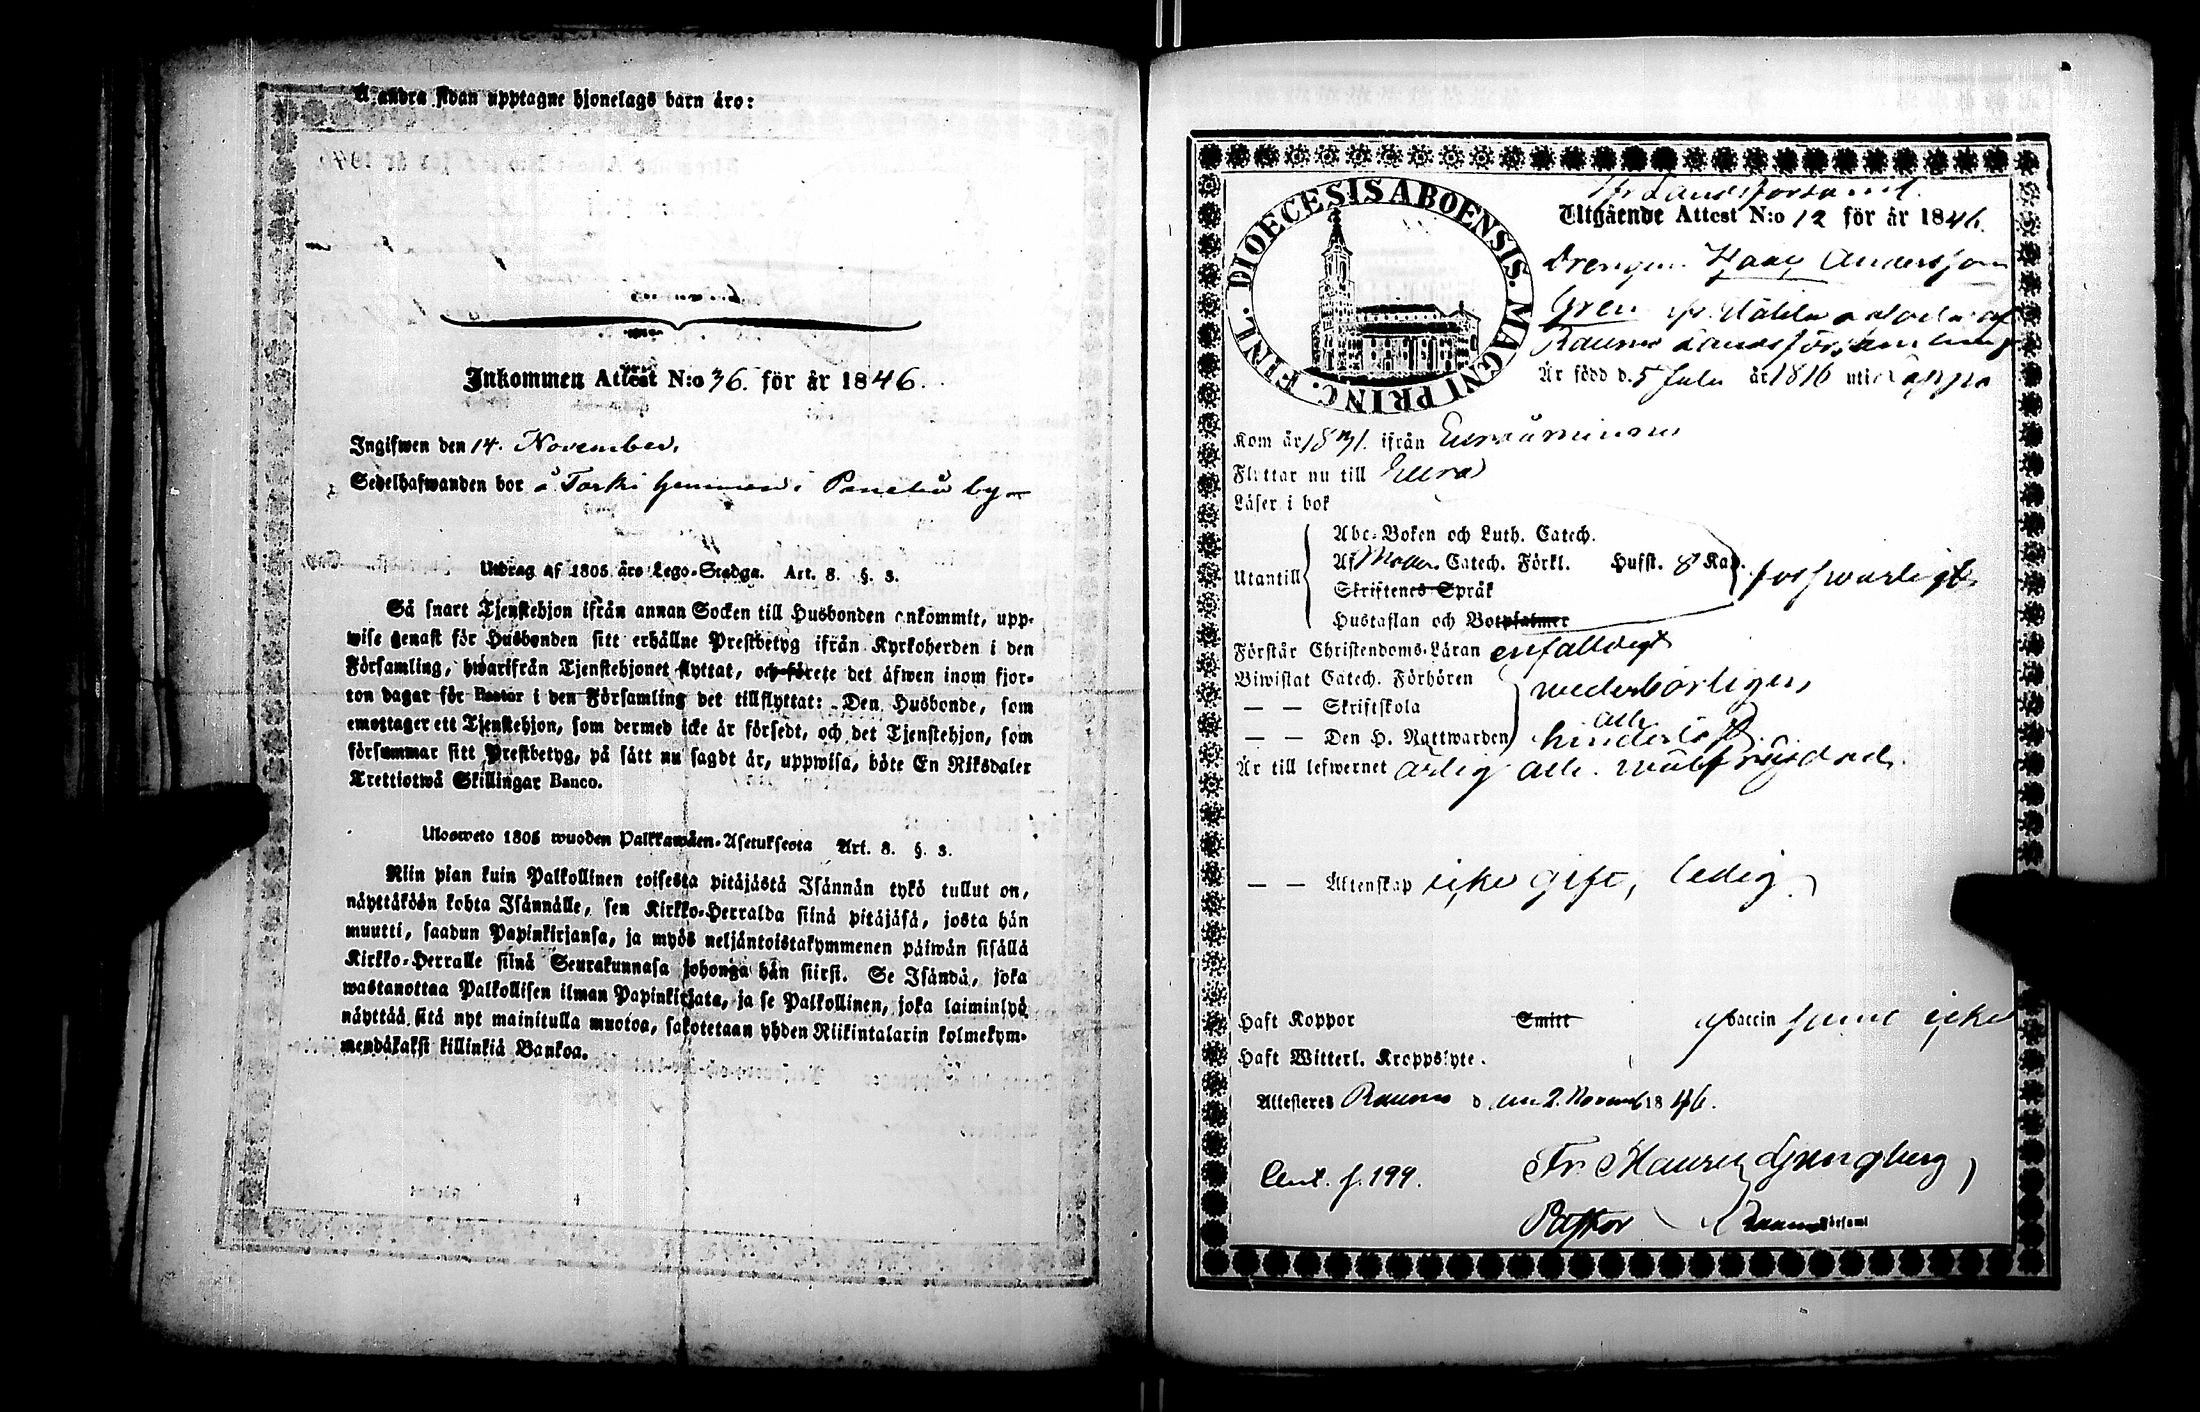 Å andra sidan upptagne hjonelags barn äro:
Inkommen Attest N:o 36. för år 1846.
Ingifwen den 14. November.
Sedelhafwanden bor å Torki hemman i Panelia by
Utdrag af 1805 års Lego-Stadga. Art. 8. §. 3.
Så snart Tjenstehjon ifrån annan Socken till Husbonden ankommit, upp-
wise genast för Husbonden sitt erhållne Prestbetyg ifrån Kyrkoherden i den
Församling, hwarifrån Tjenstehjonet flyttat, och förete det äfwen inom fjor-
ton dagar för Pastor i den Församling det tillflyttat: Den Husbonde, som
emottager ett Tjenstehjon, som dermed icke är försedt, och det Tjenstehjon, som
försummar sitt Prestbetyg, på sätt nu sagdt är, uppwisa, böte En Riksdaler
Trettiotwå Skillingar Banco.
Ulosweto 1805 wuoden Palkkawäen-Asetuksesta Art. 8. §. 3.
Niin pian kuin Palkollinen toisesta pitäjästä Isännän tykö tullut on,
näyttäköön kohta Isännälle, sen Kirkko-Herralda siinä pitäjäsä, josta hän
muutti, saadun Papinkirjansa, ja myös neljäntoistakymmenen päiwän sisällä
Kirkko-Herralle siinä Seurakunnasa johonga hän siirsi. Se Isändä, joka
wastanottaa Palkollisen ilman Papinkirjata, ja se Palkollinen, joka laiminlyö
näyttää sitä nyt mainitulla muotoa, sakotetaan yhden Riikintalarin kolmekym-
mendäkaksi killinkiä Bankoa.
DIOECESIS ABOENSIS. MAGNI PRINC. FINL.
fr Landsförsaml.
Utgående Attest N:o 12 för år 1846.
Drengen Isaac Andersson
Gren fr.
Raumo Landsförsamling
Är född d. 5 Julii år 1816 uti Lappo
Kom år 1831. ifrån Euraåminne
Flyttar nu till Eura
Läser i bok
Abc-Boken och Luth. Catech.
Utantill Af Catech. Förkl. Hufst. 8 Kap. försvarligt
Skriftenes Språk
Hustaflan och Botpsalmer
Förstår Christendoms-Läran enfalldigt
Biwistat Catech. Förhören wederbörligen,
— — Skriftskola
— — Den H. Nattwarden och hinderlös
Är till lefwernet ärlig och wälfrägdad.
— — Äktenskap icke gift, ledig.
Haft Koppor Smitt af Vaccin samt icke
Haft Witterl. Kroppslyte.
Attesteres Raumo d den 2. Novemb 1846.
Cent. f. 199. Fr Maur Ljungberg,
Pastor i Raumo Församl